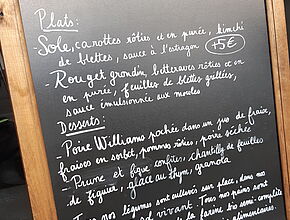 Plats:
- Sole, carottes rôties et en purée, kimchi
de blettes, sauce à l'estragon +5€
- Rouget grondin, betteraves rôties et en
en purée, feuilles de blettes grillées,
sauce émulsionnée aux moules
Desserts:
- Poire Williams pochée dans un jus de fraise,
fraises en sorbet, pommes rôties, poire séchée
- Prune et figue confites, chantilly de feuilles
de figuier, glace au thym, granola
nos légumes sont cultivés sur place, dans nos
vivant. Tous nos pains sont
la farine bio semi-complète
alimentaires.